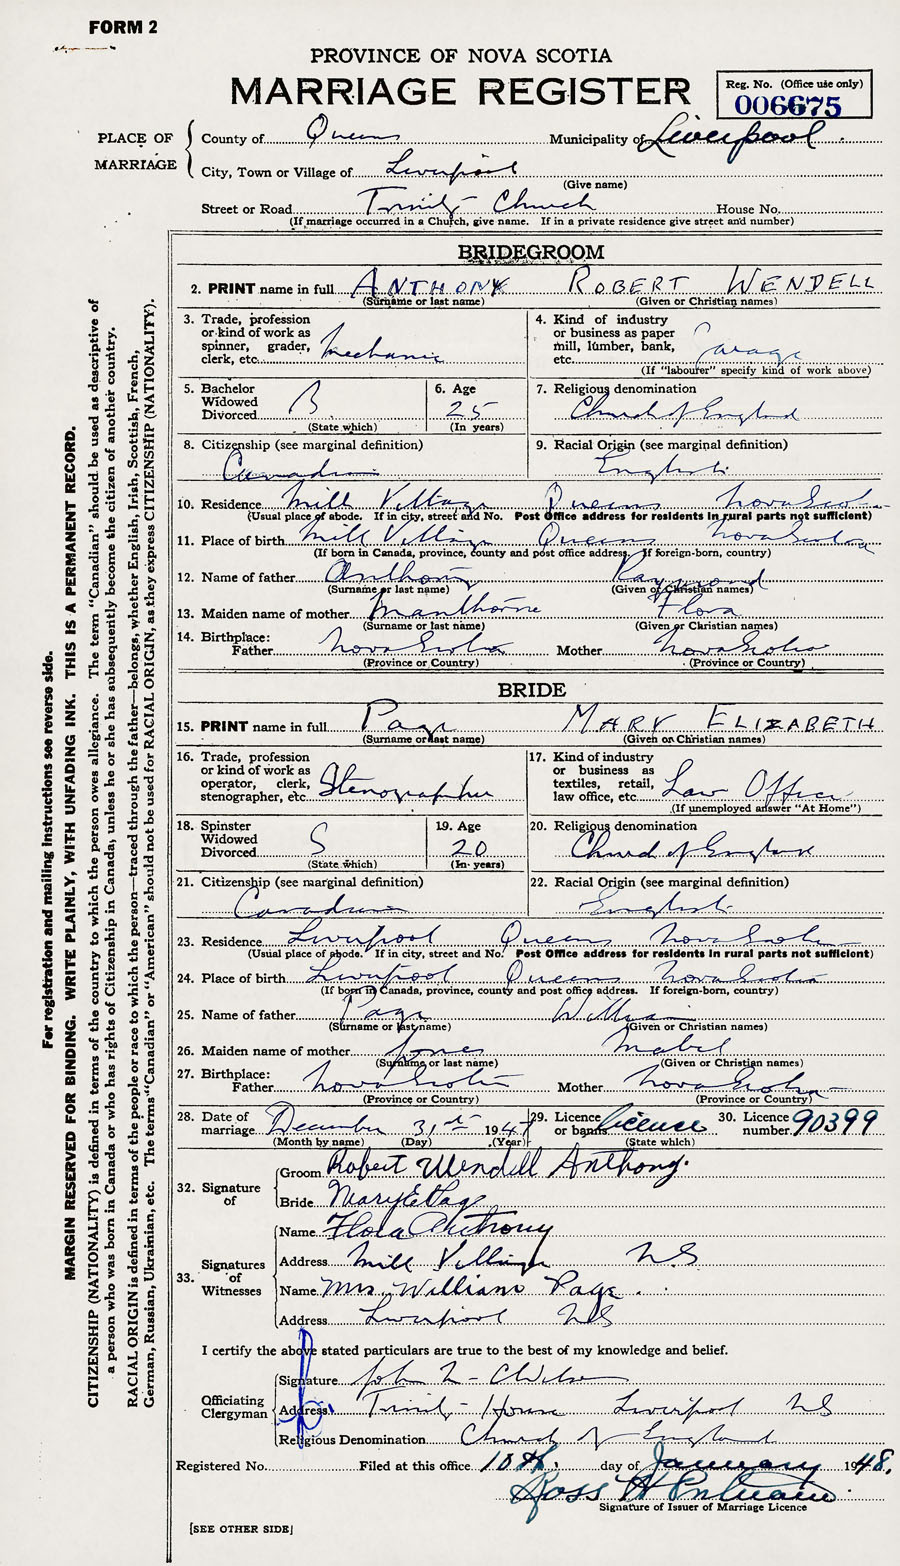 FORM 2
PROVINCE OF NOVA SCOTIA
MARRIAGE REGISTER
Reg. No. (Office use only)
006675
PLACE OF MARRIAGE
County of Queens Municipality of Liverpool
City, Town or Village of Liverpool
(Give name)
Street or Road Trinity Church House No.
(If marriage occurred in a Church, give name. If in a private residence give street and number)
BRIDEGROOM
2. PRINT name in full ANTHONY ROBERT WENDELL
(Surname or last name) (Given or Christian names)
3. Trade, profession or kind of work as spinner, grader, clerk, etc. Mechanic
4. Kind of industry or business as paper mill, lumber, bank, etc. Garage
(If "labourer" specify kind of work above)
5. Bachelor Widowed Divorced B.
(State which)
6. Age 25
(In years)
7. Religious denomination
Church of England
8. Citizenship (see marginal definition)
Canadian
9. Racial Origin (see marginal definition)
English
10. Residence Mill Village Queens Nova Scotia
(Usual place of abode. If in city, street and No. Post Office address for residents in rural parts not sufficient)
11. Place of birth Mill Village Queens Nova Scotia
(If born in Canada, province, county and post office address. If foreign-born, country)
12. Name of father Anthony Raymond
(Surname or last name) (Given or Christian names)
13. Maiden name of mother Manthorne Flora
(Surname or last name) (Given or Christian names)
14. Birthplace:
Father Nova Scotia Mother Nova Scotia
(Province or Country) (Province or Country)
BRIDE
15. PRINT name in full Page MARY ELIZABETH
(Surname or last name) (Given or Christian names)
16. Trade, profession or kind of work as operator, clerk, stenographer, etc. Stenographer
17. Kind of industry or business as textiles, retail, law office, etc. Law Office
(If unemployed answer "At Home")
18. Spinster Widowed Divorced S
(State which)
19. Age 20
(In years)
20. Religious denomination
Church of England
21. Citizenship (see marginal definition)
Canadian
22. Racial Origin (see marginal definition)
English
23. Residence Liverpool Queens Nova Scotia
(Usual place of abode. If in city, street and No. Post Office address for residents in rural parts not sufficient)
24. Place of birth Liverpool Queens Nova Scotia
(If born in Canada, province, county and post office address. If foreign-born, country)
25. Name of father Page William
(Surname or last name) (Given or Christian names)
26. Maiden name of mother Jones Mabel
(Surname or last name) (Given or Christian names)
27. Birthplace:
Father Nova Scotia Mother Nova Scotia
(Province or Country) (Province or Country)
28. Date of marriage December 31st 1947
(Month by name) (Day) (Year)
29. Licence or banns licence
(State which)
30. Licence number 90399
32. Signature of
Groom Robert Wendell Anthony.
Bride Mary E Page
33. Signatures of Witnesses
Name Flora Anthony
Address Mill Village NS
Name Mrs. William Page
Address Liverpool NS
I certify the above stated particulars are true to the best of my knowledge and belief.
Officiating Clergyman
Signature John
Address Trinity House Liverpool NS
Religious Denomination Church of England
Registered No. Filed at this office 10th. day of January 1948.
Ross
Signature of Issuer of Marriage Licence
[SEE OTHER SIDE]
For registration and mailing instructions see reverse side.
MARGIN RESERVED FOR BINDING. WRITE PLAINLY, WITH UNFADING INK. THIS IS A PERMANENT RECORD.
CITIZENSHIP (NATIONALITY) is defined in terms of the country to which the person owes allegiance. The term "Canadian" should be used as descriptive of
a person who was born in Canada or who has rights of Citizenship in Canada, unless he or she has subsequently become the citizen of another country.
RACIAL ORIGIN is defined in terms of the people or race to which the person—traced through the father—belongs, whether English, Irish, Scottish, French,
German, Russian, Ukrainian, etc. The terms "Canadian" or "American" should not be used for RACIAL ORIGIN, as they express CITIZENSHIP (NATIONALITY).